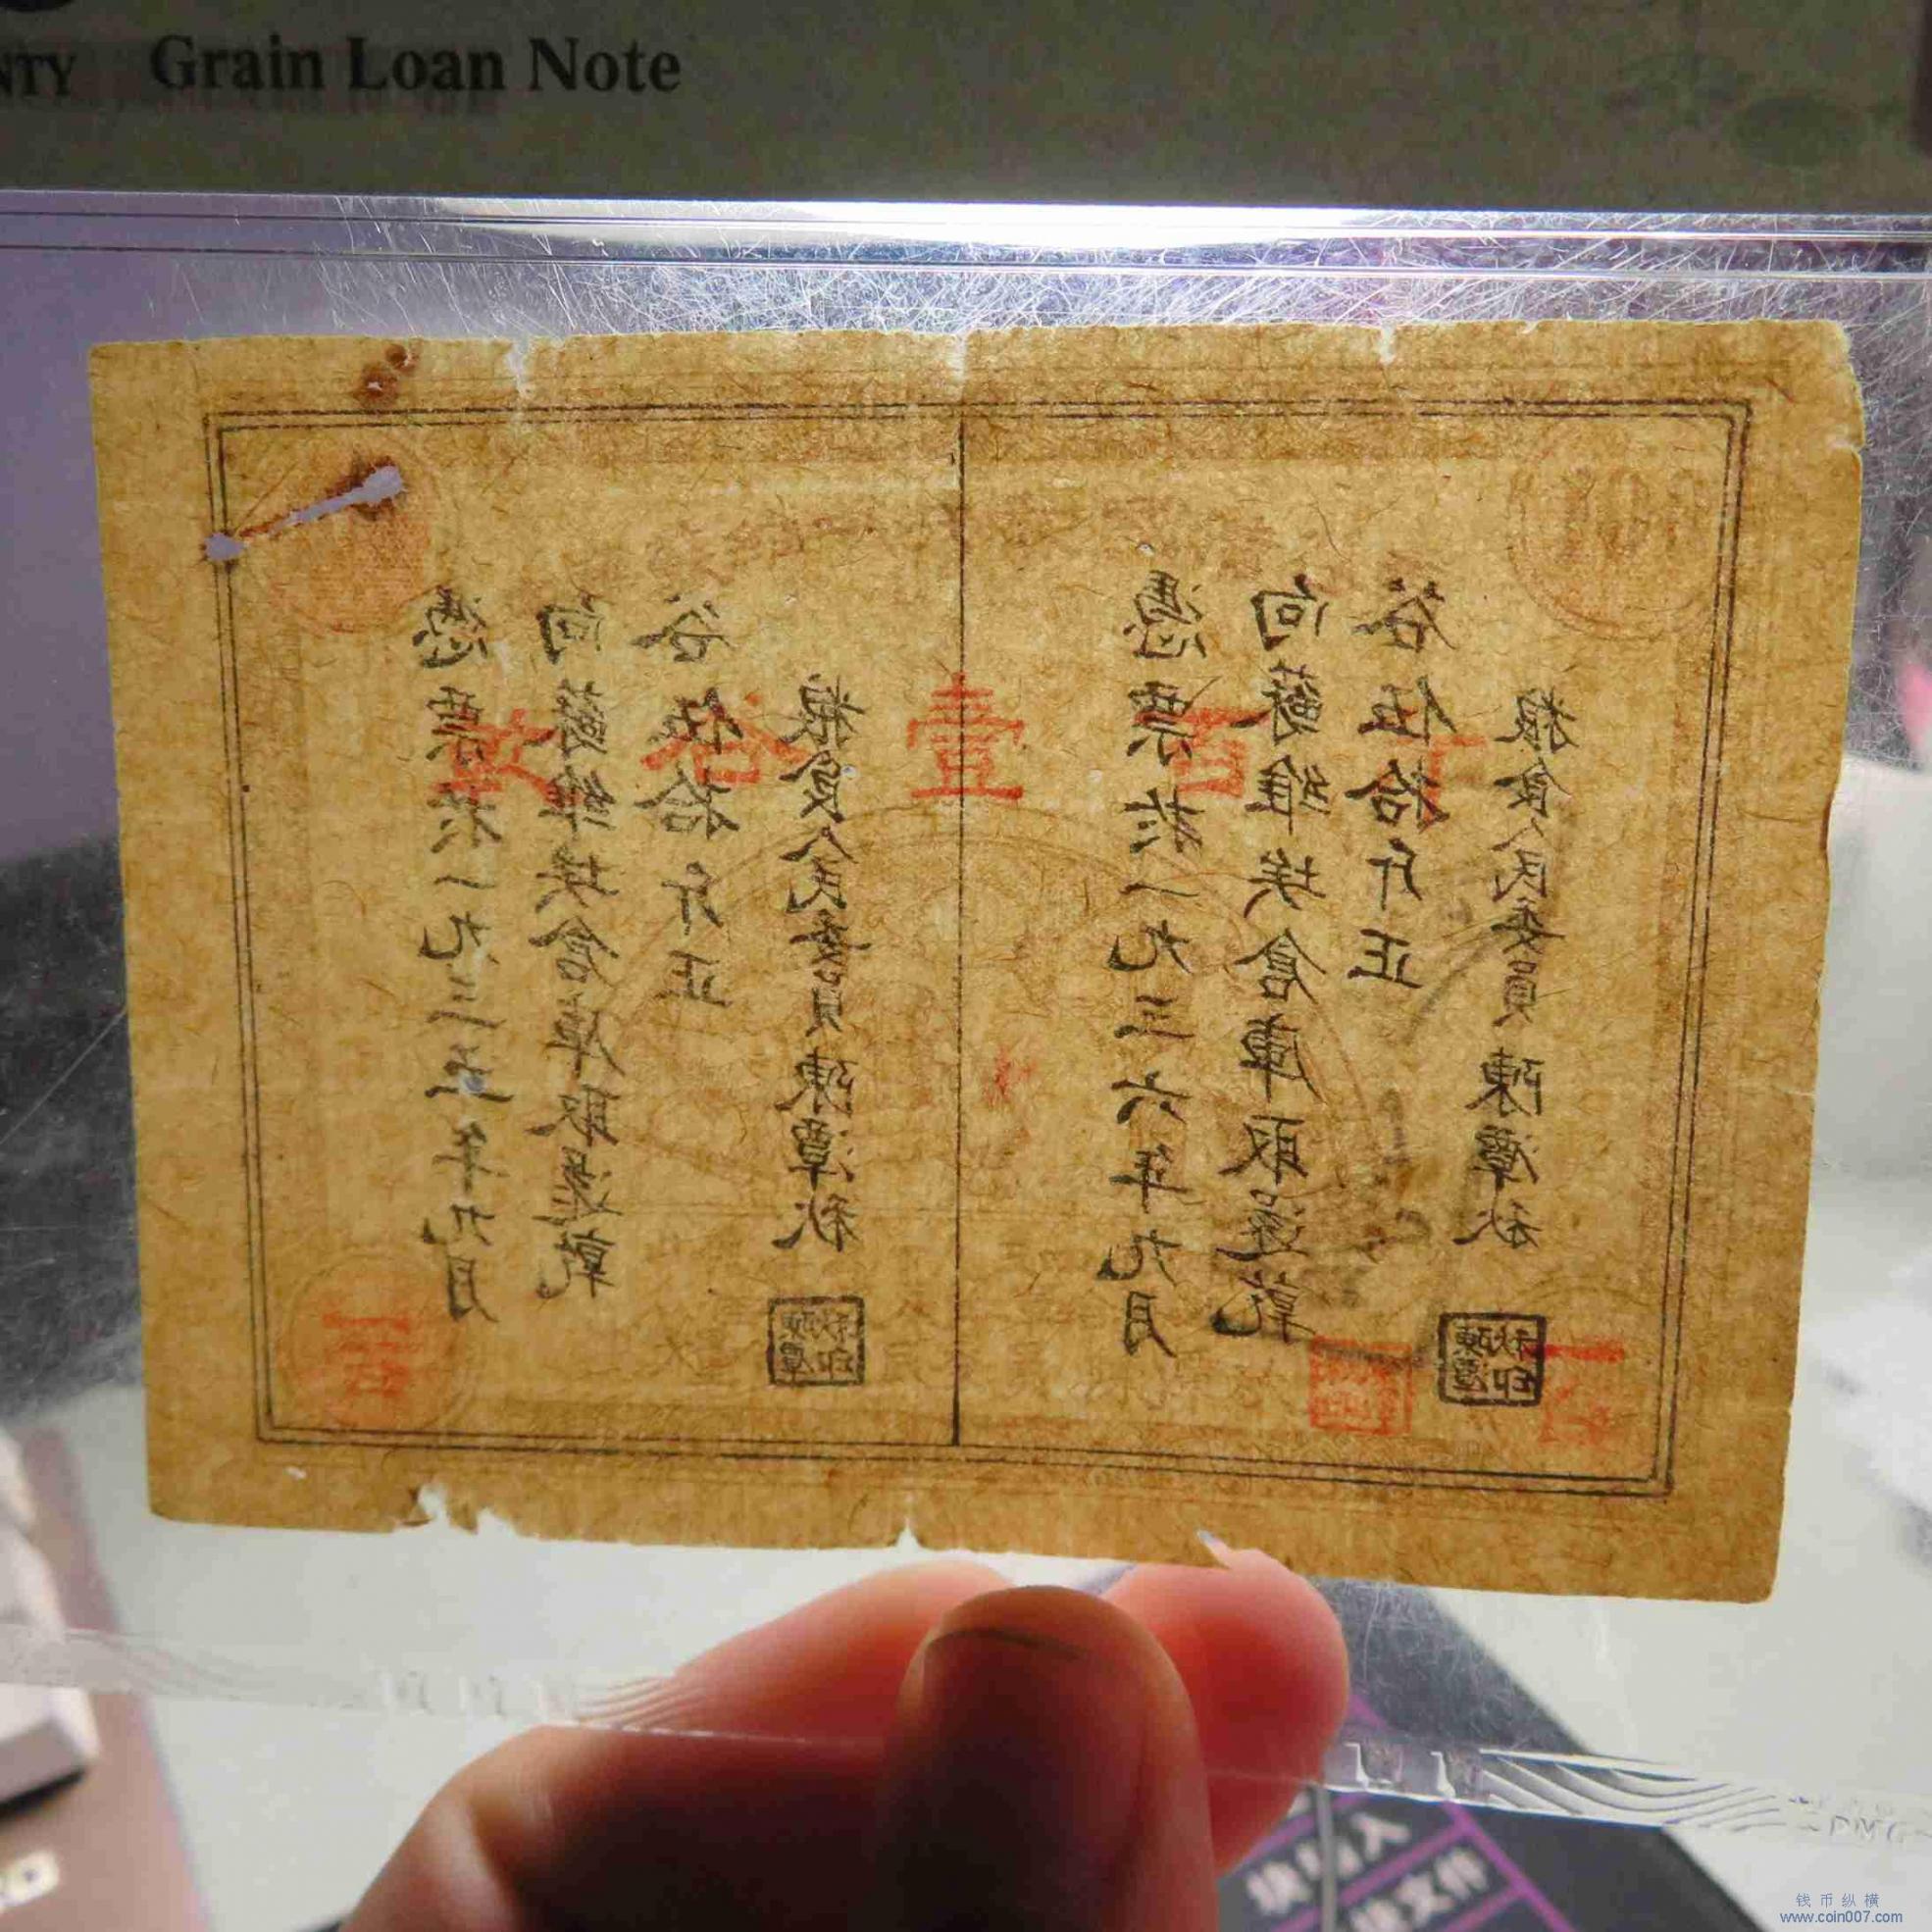 NTY Grain Loan Note
憑票於一九三五年九月
向蘇維埃倉庫取還乾
谷伍拾斤正
粮食人民委員 陳潭秋
陳潭秋印
憑票於一九三六年九月
向蘇維埃倉庫取還乾
谷伍拾斤正
粮食人民委員 陳潭秋
陳潭秋印
乾谷壹百斤
一百
钱币纵横
www.coin007.com